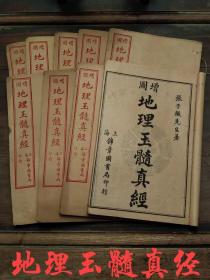 增圖
地理
增圖
地理
增圖
地理
增圖
地理
增圖
地理玉髓真經
增圖
地理玉髓真經
增圖
地理玉髓真經
張子微先生著
增圖
地理玉髓真經
上海錦章圖書局印行
地理玉髓真經